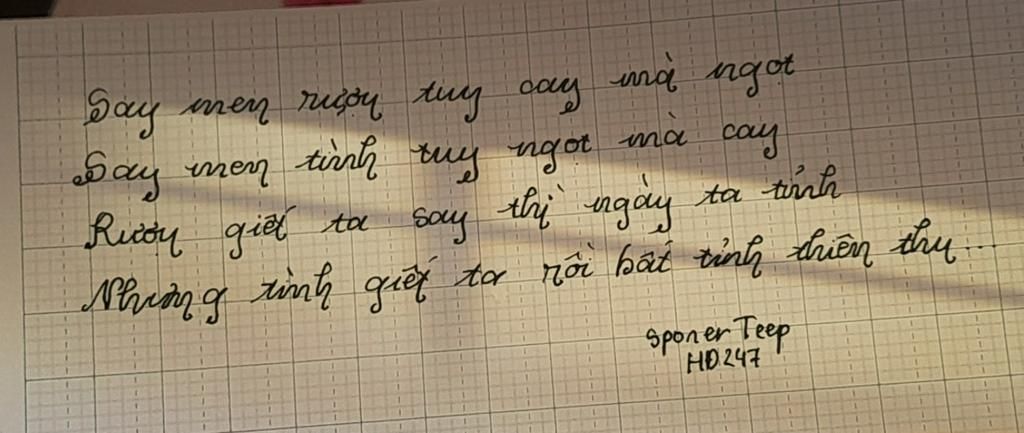 Say men rượu tuy cay mà ngọt
Say men tình tuy ngọt mà cay
Rượu giết ta say thì ngày ta tỉnh
Nhưng tình giết ta rồi bất tỉnh thiên thu...
sponer Teep
HD247